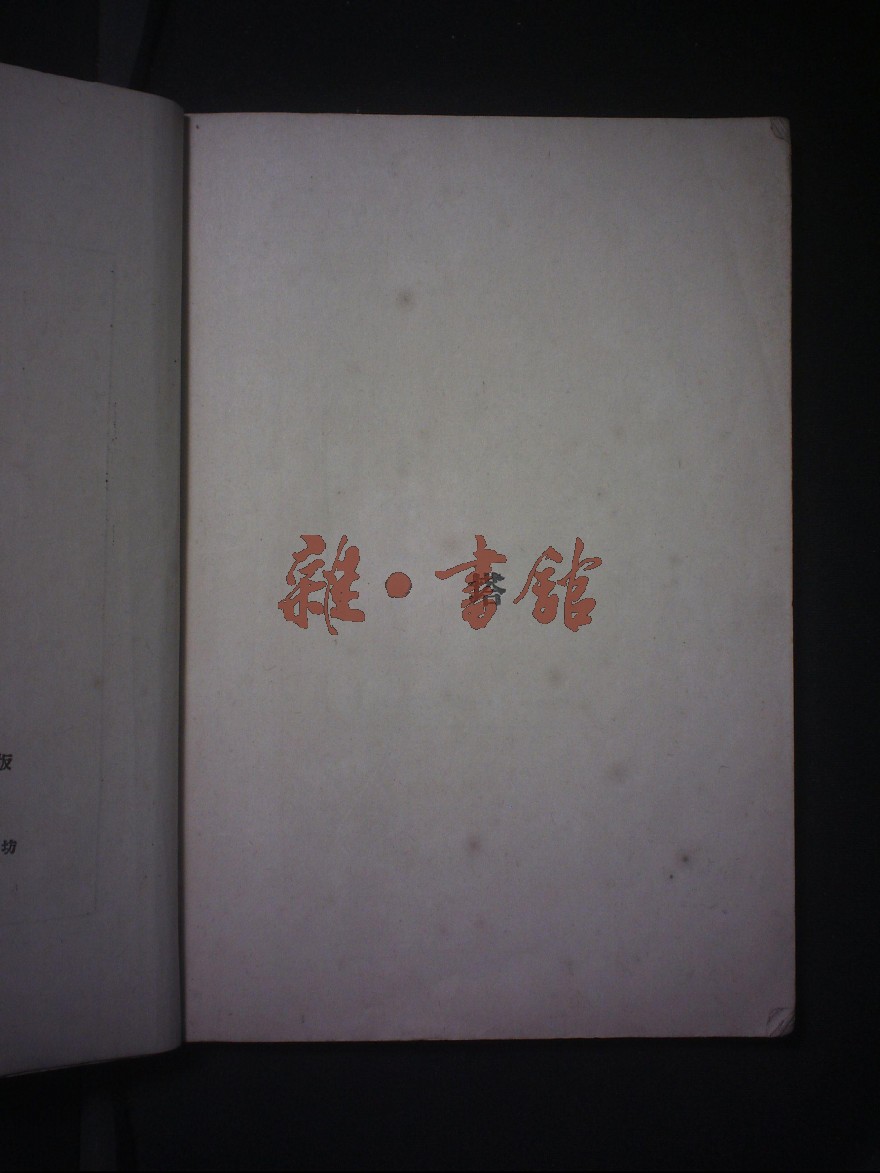 版
坊
雜·書館
塔